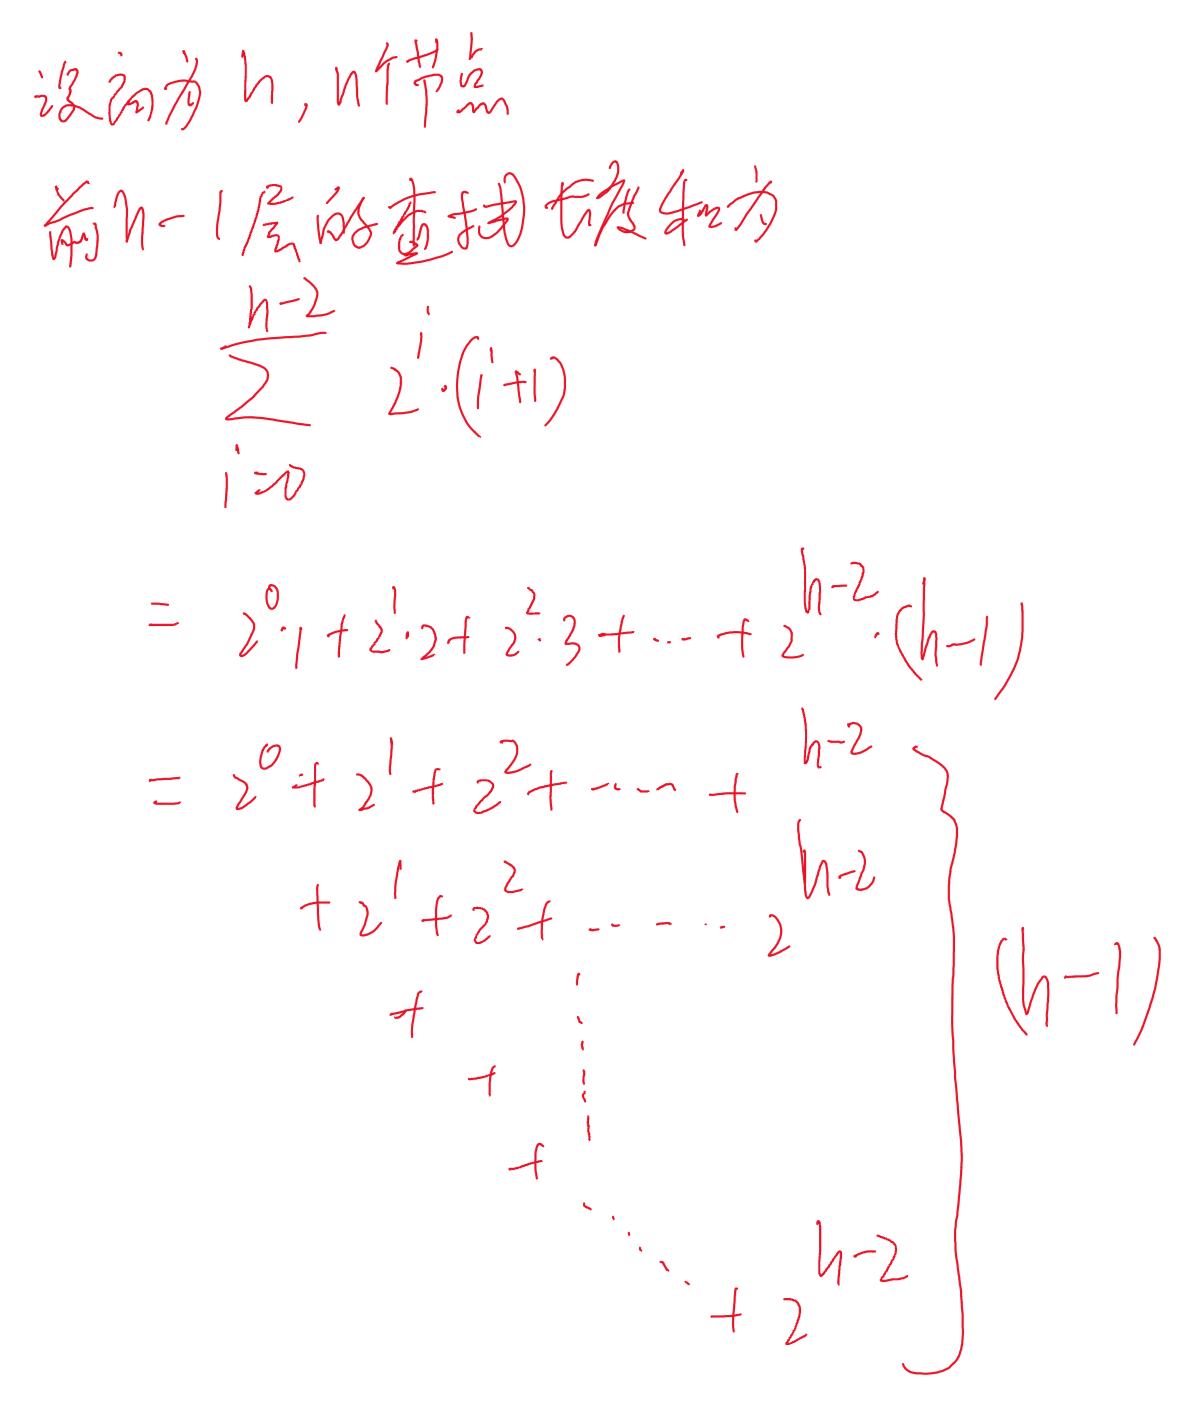 设高为 h, n个节点
前h-1层的查找长度和为
h-2
∑ 2^i·(i+1)
i=0
= 2^0·1+2^1·2+2^2·3+···+2^{h-2}·(h-1)
= 2^0+2^1+2^2+······+ ^{h-2}
+2^1+2^2+······2^{h-2}
+
(h-1)
+
+
+2^{h-2}